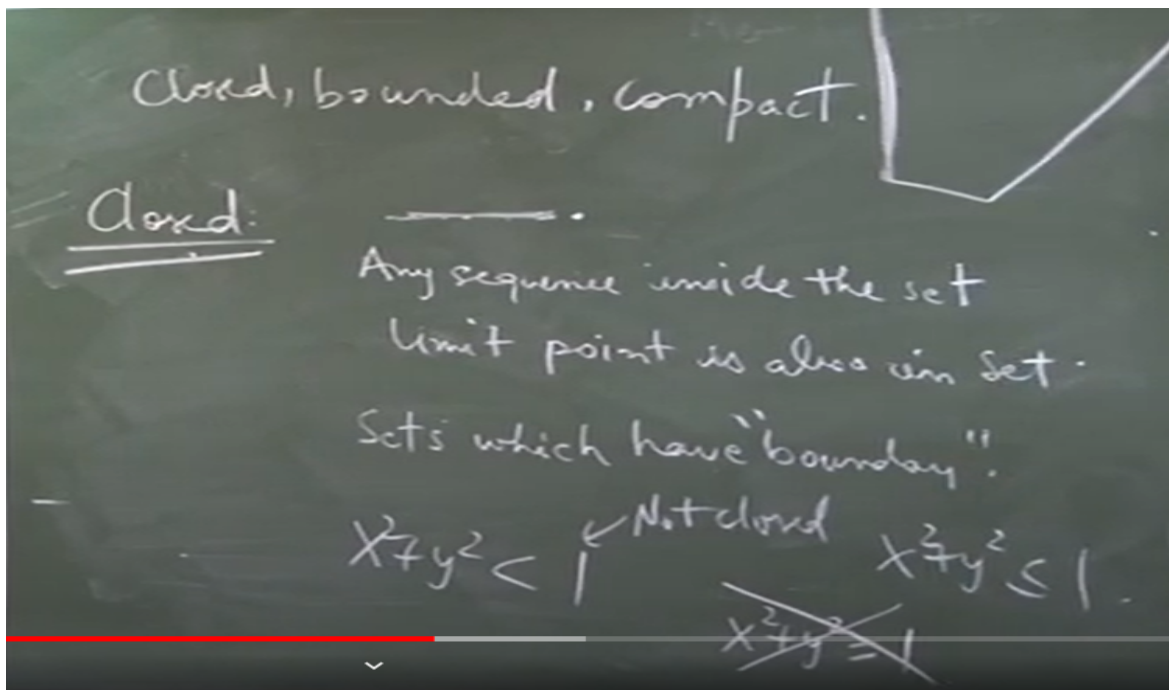 Closed, bounded, compact.
Closed:
Any sequence inside the set
limit point is also in Set.
Sets which have "bounday".
X²+y² < 1 ← Not closed X²+y² ≤ 1.
X²+y² = 1